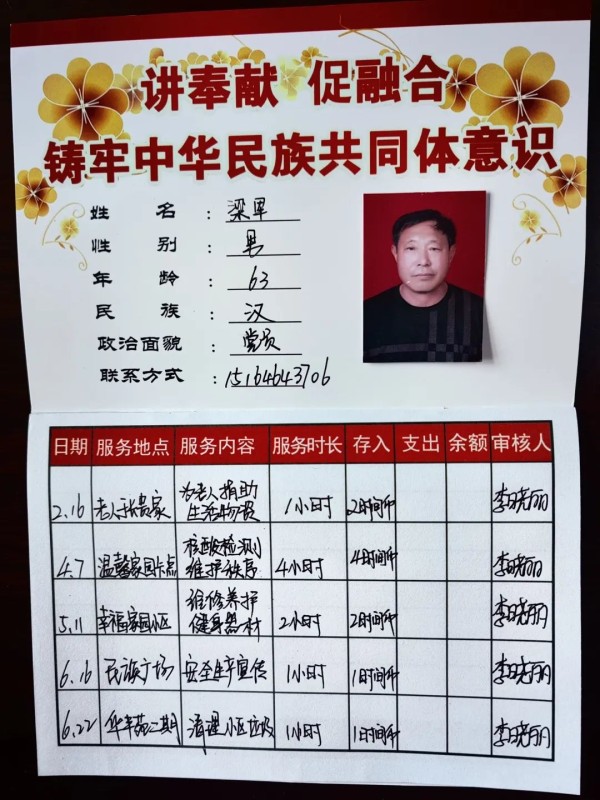 讲奉献 促融合
铸牢中华民族共同体意识
姓名：梁军
性别：男
年龄：63
民族：汉
政治面貌：党员
联系方式：15164643706
日期 服务地点 服务内容 服务时长 存入 支出 余额 审核人
2.16 老人张贵家 为老人捐助生活物资 1小时 2时间币 李晓丽
4.7 温馨家园卡点 核酸检测维护秩序 4小时 4时间币 李晓丽
5.11 幸福家园小区 维修养护健身器材 2小时 2时间币 李晓丽
6.16 民族广场 安全生产宣传 1小时 1时间币 李晓丽
6.22 华丰苑二期 清理小区垃圾 1小时 1时间币 李晓丽